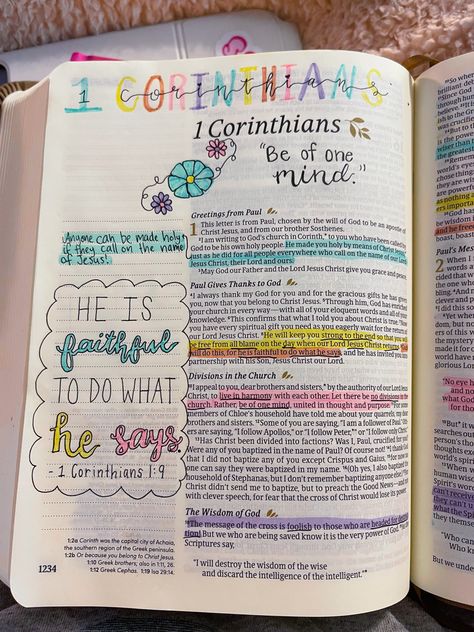 1 CORINTHIANS
Corinthians
1 Corinthians
"Be of one
mind."
Greetings from Paul
1 This letter is from Paul, chosen by the will of God to be an apostle of
Christ Jesus, and from our brother Sosthenes.
²I am writing to God's church in Corinth,ᵃ to you who have been called
by God to be his own holy people. He made you holy by means of Christ Jesus,ᵇ
just as he did for all people everywhere who call on the name of our Lord
Jesus Christ, their Lord and ours.
³May God our Father and the Lord Jesus Christ give you grace and peace.
Anyone can be made holy
if they call on the name
of Jesus!
Paul Gives Thanks to God
⁴I always thank my God for you and for the gracious gifts he has given
you, now that you belong to Christ Jesus. ⁵Through him, God has enriched
your church in every way—with all of your eloquent words and all of your
knowledge. ⁶This confirms that what I told you about Christ is true. ⁷Now
you have every spiritual gift you need as you eagerly wait for the return of
our Lord Jesus Christ. ⁸He will keep you strong to the end so that you will
be free from all blame on the day when our Lord Jesus Christ returns. ⁹God
will do this, for he is faithful to do what he says, and he has invited you into
partnership with his Son, Jesus Christ our Lord.
HE IS
faithful
TO DO WHAT
he says.
- 1 Corinthians 1:9
Divisions in the Church
¹⁰I appeal to you, dear brothers and sisters,ᵃ by the authority of our Lord Jesus
Christ, to live in harmony with each other. Let there be no divisions in the
church. Rather, be of one mind, united in thought and purpose. ¹¹For some
members of Chloe's household have told me about your quarrels, my dear
brothers and sisters. ¹²Some of you are saying, "I am a follower of Paul." Others
are saying, "I follow Apollos," or "I follow Peter,ᵃ" or "I follow only Christ."
¹³Has Christ been divided into factions? Was I, Paul, crucified for you?
Were any of you baptized in the name of Paul? Of course not! ¹⁴I thank God
that I did not baptize any of you except Crispus and Gaius, ¹⁵for now no
one can say they were baptized in my name. ¹⁶(Oh yes, I also baptized the
household of Stephanas, but I don't remember baptizing anyone else.) ¹⁷For
Christ didn't send me to baptize, but to preach the Good News—and not
with clever speech, for fear that the cross of Christ would lose its power.
The Wisdom of God
¹⁸The message of the cross is foolish to those who are headed for destruc-
tion! But we who are being saved know it is the very power of God. ¹⁹As the
Scriptures say,
"I will destroy the wisdom of the wise
and discard the intelligence of the intelligent."
1:2a Corinth was the capital city of Achaia,
the southern region of the Greek peninsula.
1:2b Or because you belong to Christ Jesus.
1:10 Greek brothers; also in 1:11, 26.
1:12 Greek Cephas. 1:19 Isa 29:14.
1234